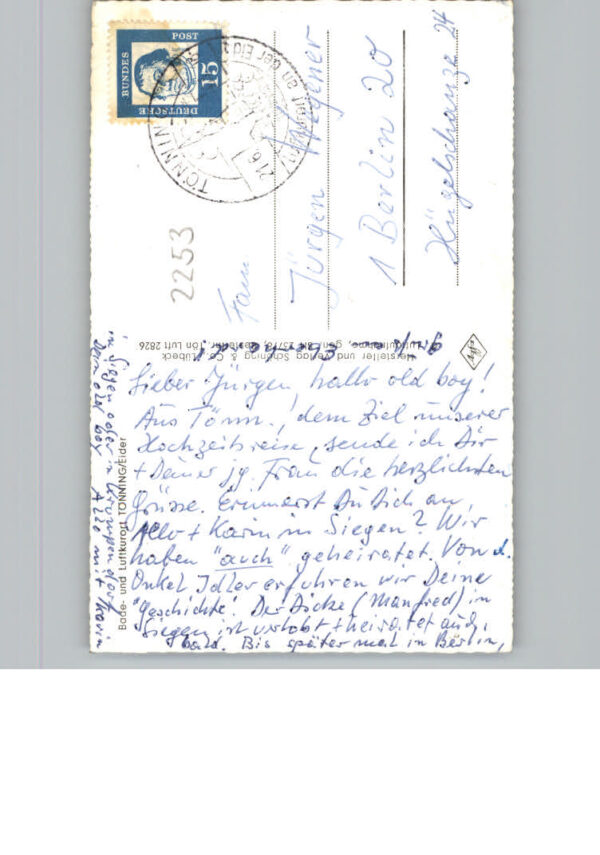 DEUTSCHE
BUNDES
POST
15
TÖNNIN
an der Eid
216
2253
Fam.
Jürgen Wegener
1 Berlin 20
Hügelschanze 24
Hersteller und Verlag Schöning & Co., Lübeck
Luftaufnahme, gen.
Tön Luft 2826
Bade- und Luftkurort TÖNNING/Eider
Lieber Jürgen, hallo old boy!
Aus Tönn., dem Ziel unserer
Hochzeitsreise, sende ich Dir
+ Deiner jg. Frau die herzlichsten
Grüsse. Erinnerst Du Dich an
+ Karin in Siegen? Wir
haben "auch" geheiratet. Von d.
Onkel Idler erfuhren wir Deine
"Geschichte". Der Dicke (Manfred) in
Siegen ist verlobt + heiratet auch
bald. Bis später mal in Berlin,
in Siegen oder in
Dein old boy mit Karin